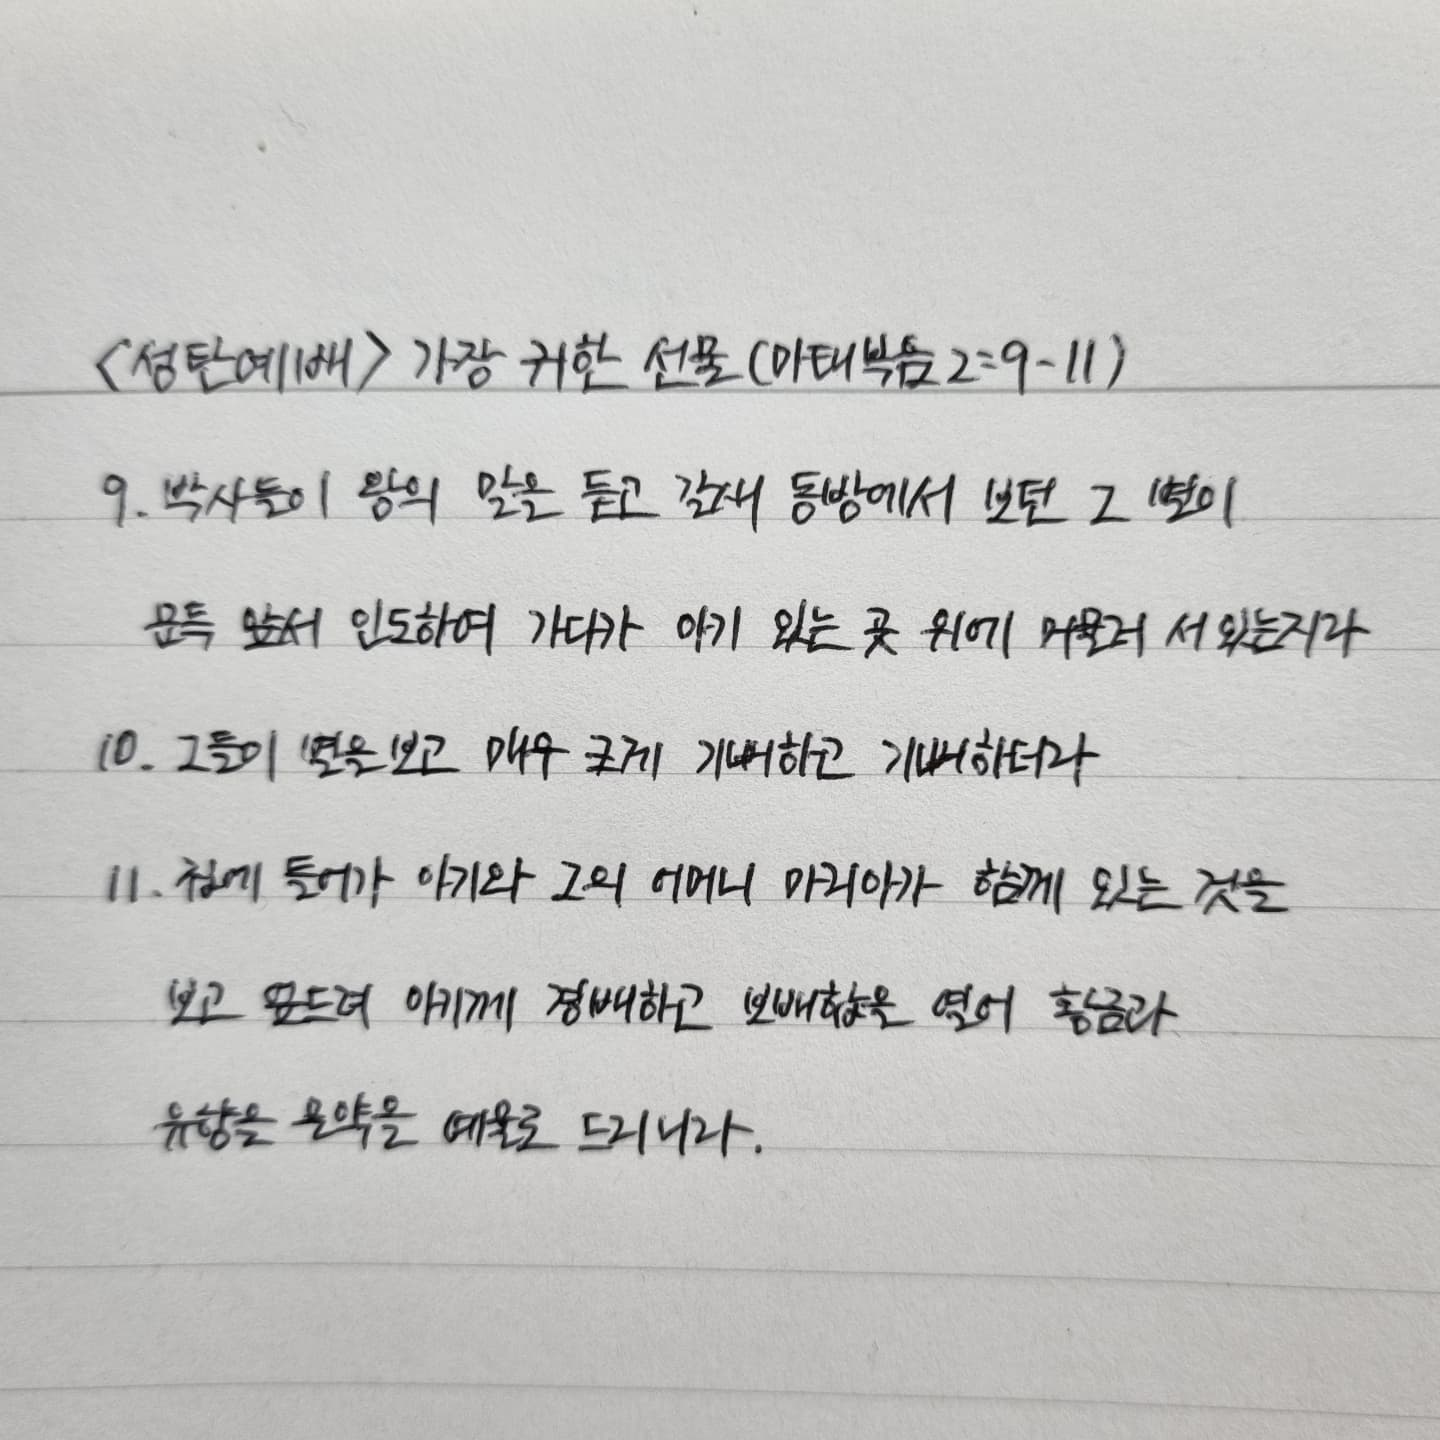 <성탄예배> 가장 귀한 선물 (마태복음 2:9-11)
9. 박사들이 왕의 말을 듣고 갈새 동방에서 보던 그 별이
문득 앞서 인도하여 가다가 아기 있는 곳 위에 머물러 서 있는지라
10. 그들이 별을 보고 매우 크게 기뻐하고 기뻐하더라
11. 집에 들어가 아기와 그의 어머니 마리아가 함께 있는 것을
보고 엎드려 아기께 경배하고 보배합을 열어 황금과
유향을 몰약을 예물로 드리니라.